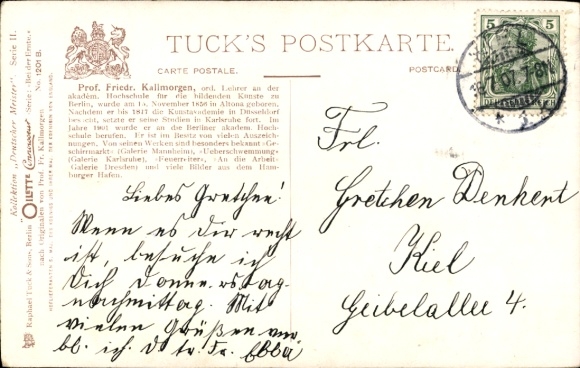 TUCK'S POSTKARTE.
CARTE POSTALE.
POSTCARD
Prof. Friedr. Kallmorgen, ord. Lehrer an der
akadem. Hochschule für die bildenden Künste zu
Berlin, wurde am 15. November 1856 in Altona geboren.
Nachdem er bis 1877 die Kunstakademie in Düsseldorf
besucht, setzte er seine Studien in Karlsruhe fort. Im
Jahre 1901 wurde er an die Berliner akadem. Hoch-
schule berufen. Er ist im Besitz von vielen Auszeich-
nungen. Von seinen Werken sind besonders bekannt »Ge-
schirrmarkt« (Galerie Mannheim), »Ueberschwemmung«
(Galerie Karlsruhe), »Feuerreiter«, »An die Arbeit«
(Galerie Dresden) und viele Bilder aus dem Ham-
burger Hafen.
Liebes Gretchen!
Wenn es Dir recht
ist, besuche ich
Dich Donnerstag-
nachmittag. Mit
vielen Grüßen ver
bl. ich D. tr. Fr. Ebba
Frl.
Gretchen Denkert
Kiel
Geibelallee 4.
5 5
07
DEUTSCHES REICH
Kollektion „Deutscher Meister" Serie II.
"OILETTE"
Raphael Tuck & Sons, Berlin
nach Originalen von Prof. Fr. Kallmorgen. No. 1201 B.